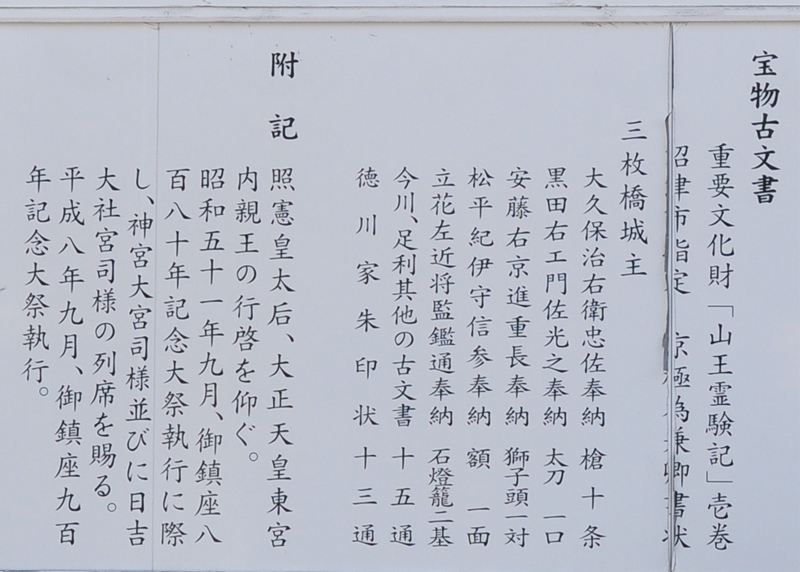 宝物古文書
重要文化財「山王霊験記」壱巻
沼津市指定 京極為兼卿書状
三枚橋城主
大久保治右衛忠佐奉納 槍十条
黒田右エ門佐光之奉納 太刀一口
安藤右京進重長奉納 獅子頭一対
松平紀伊守信参奉納 額一面
立花左近将監鑑通奉納 石燈籠二基
今川、足利其他の古文書 十五通
徳川家朱印状十三通
附記
照憲皇太后、大正天皇東宮
内親王の行啓を仰ぐ。
昭和五十一年九月、御鎮座八
百八十年記念大祭執行に際
し、神宮大宮司様並びに日吉
大社宮司様の列席を賜る。
平成八年九月、御鎮座九百
年記念大祭執行。